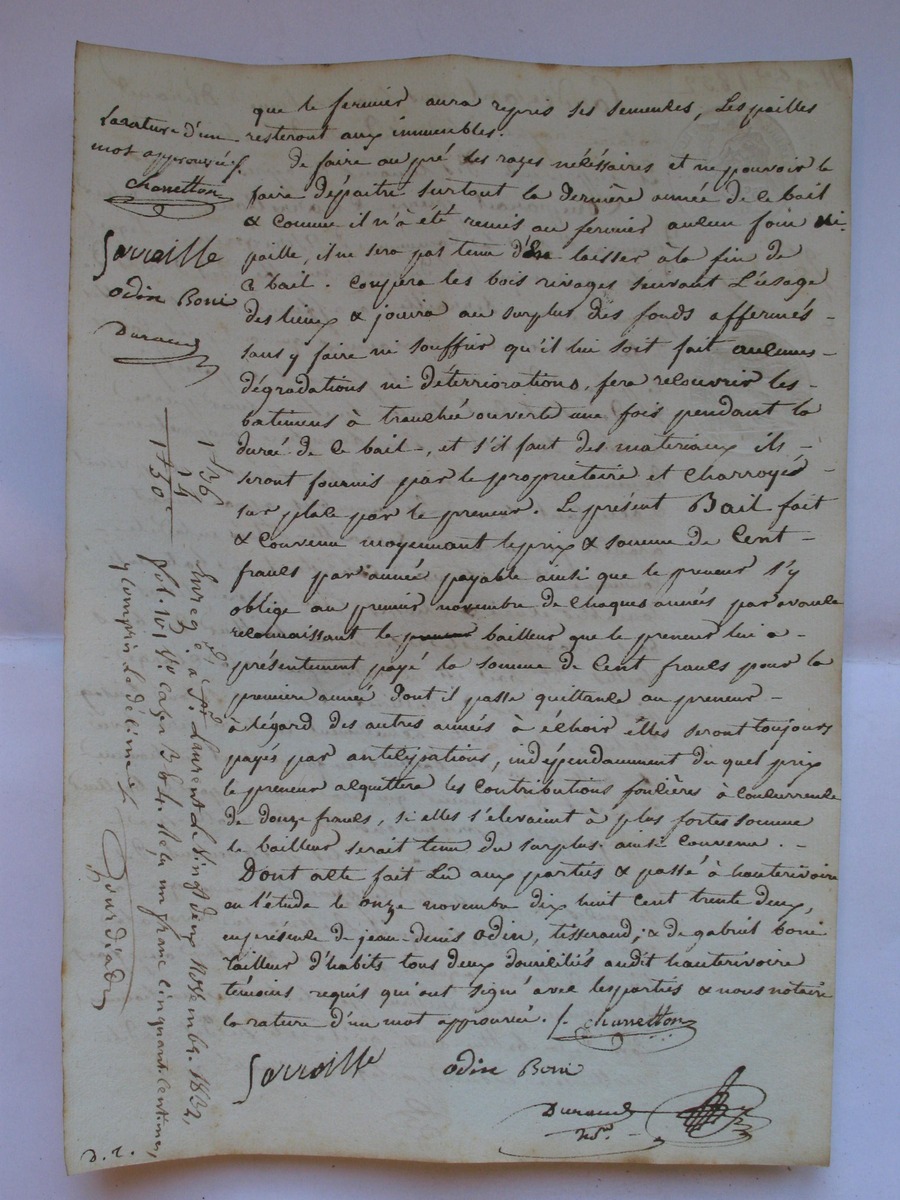 que le fermier aura repris ses semences, Les pailles
resteront aux immeubles.
de faire au pré les razes nécéssaires et ne pouvoir le
faire dépaitre surtout la dernière année de ce bail
& comme il n'a été remis au fermier aucun foin ni
paille, il ne sera pas tenu d'en laisser à la fin de
ce bail. coupera les bois rivages suivant L'usage
des lieux & jouira au surplus des fonds affermés -
sans y faire ni souffrir qu'il lui soit fait aucunes -
dégradations ni déteriorations, fera recouvrir les -
batimens à tranchée ouverte une fois pendant la
durée de ce bail -, et s'il faut des materiaux ils -
seront fournis par le propriétaire et charroyés -
sur place par le preneur. Le présent Bail fait
& convenu moyennant le prix & somme de Cent -
francs par année payable ainsi que le preneur s'y
oblige au premier novembre de chaques années par avance
reconnaissant le bailleur que le preneur lui a -
présentement payé la somme de Cent francs pour la
première année dont il passe quittance au preneur -
à légard des autres années à échoir elles seront toujours
payés par anticipations, indépendamment du quel prix
le preneur acquittera les contributions foncières à concurrence
de douze francs, si elles s'élevaient à plus fortes somme
le bailleur serait tenu du surplus. ainsi convenu. -
Dont acte fait Lu aux parties & passé à hauterivoire
en l'étude le onze novembre dix huit cent trente deux,
en présence de jean-denis Odin, tisserand, & de gabriel boni
tailleur d'habits tous deux domiciliés audit hauterivoire
témoins requis qui ont signé avec les parties & nous notaire
la rature d'un mot approuvée. /. Charretton
Sarraille
odin Boni
Durand
No.re
La rature d'un
mot approuvée /.
Charretton
Sarraille
odin Boni
Durand
Enreg.é à St. Laurent le vingt deux Novembre 1832,
fol. 101 V.o cases 3 & 4. Reçu un franc cinquante centimes,
y compris le décime /.
D. L.